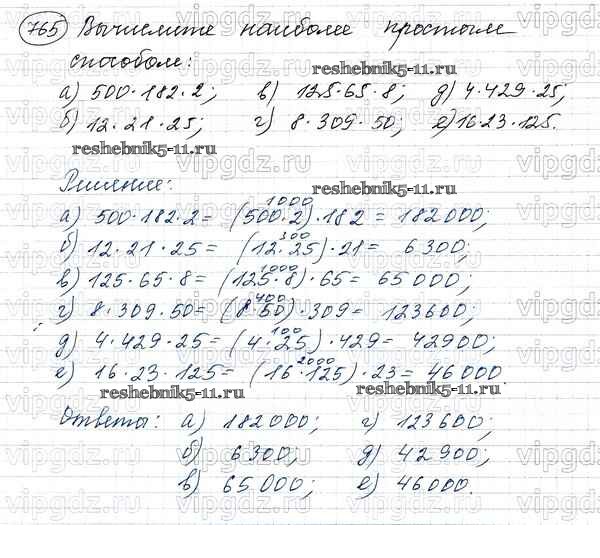 765 Вычислите наиболее простым
способом:
reshebnik5-11.ru
а) 500·182·2; в) 125·65·8; д) 4·429·25;
б) 12·21·25; г) 8·309·50; е) 16·23·125.
reshebnik5-11.ru
Решение:
reshebnik5-11.ru
1000
а) 500·182·2= (500·2)·182 = 182000;
300
б) 12·21·25= (12·25)·21= 6300;
1000
в) 125·65·8= (125·8)·65= 65000;
400
г) 8·309·50= (8·50)·309= 123600;
100
д) 4·429·25= (4·25)·429= 42900;
2000
е) 16·23·125= (16·125)·23= 46000.
reshebnik5-11.ru reshebnik5-11.ru
Ответы: а) 182000; г) 123600;
б) 6300; д) 42900;
в) 65000; е) 46000.
vipgdz.ru